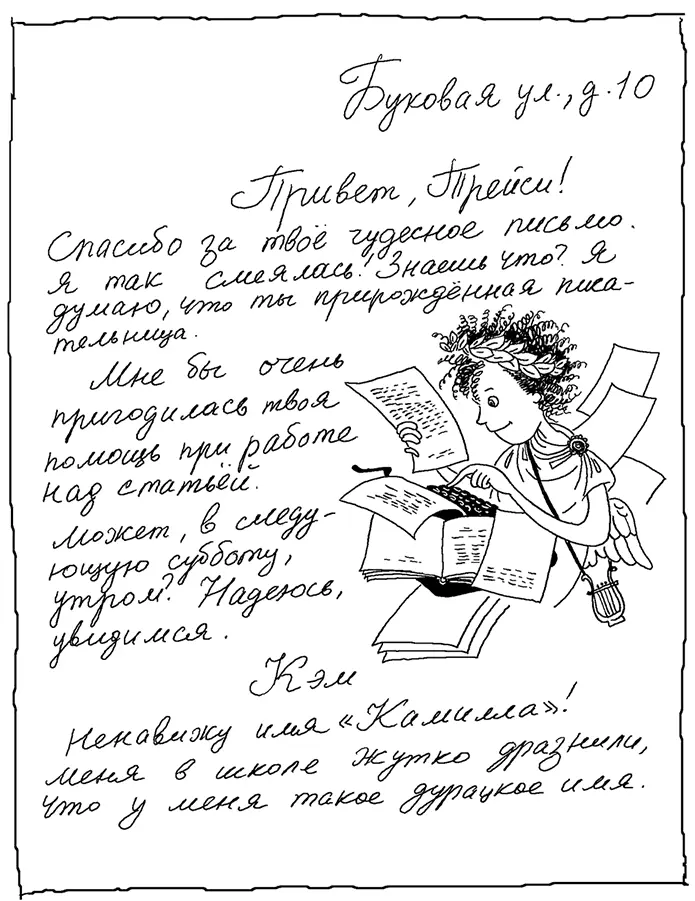 Буковая ул., д. 10
Привет, Трейси!
Спасибо за твоё чудесное письмо.
Я так смеялась! Знаешь что? Я
думаю, что ты прирождённая писа-
тельница.
Мне бы очень
пригодилась твоя
помощь при работе
над статьёй.
Может, в следу-
ющую субботу,
утром? Надеюсь,
увидимся.
Кэм
Ненавижу имя «Камилла»!
меня в школе жутко дразнили,
что у меня такое дурацкое имя.